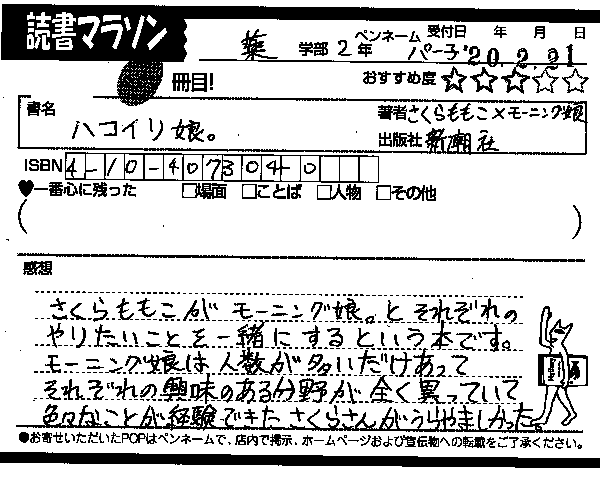 読書マラソン
薬 学部 2年 ペンネーム パー子 受付日 '20.2.21 年 月 日
冊目! おすすめ度 ☆☆☆☆☆
書名 ハコイリ娘。 著者 さくらももこ×モーニング娘
出版社 新潮社
ISBN 4-10-407304-0
♥一番心に残った □場面 □ことば □人物 □その他
( )
感想
さくらももこが モーニング娘。と それぞれの
やりたいことを 一緒に するという本です。
モーニング娘は 人数が多いだけあって
それぞれの興味のある分野が 全く異っていて
色々なことが経験できた さくらさんがうらやましかった。
●お寄せいただいたPOPはペンネームで、店内で掲示、ホームページおよび宣伝物への転載をご了承ください。